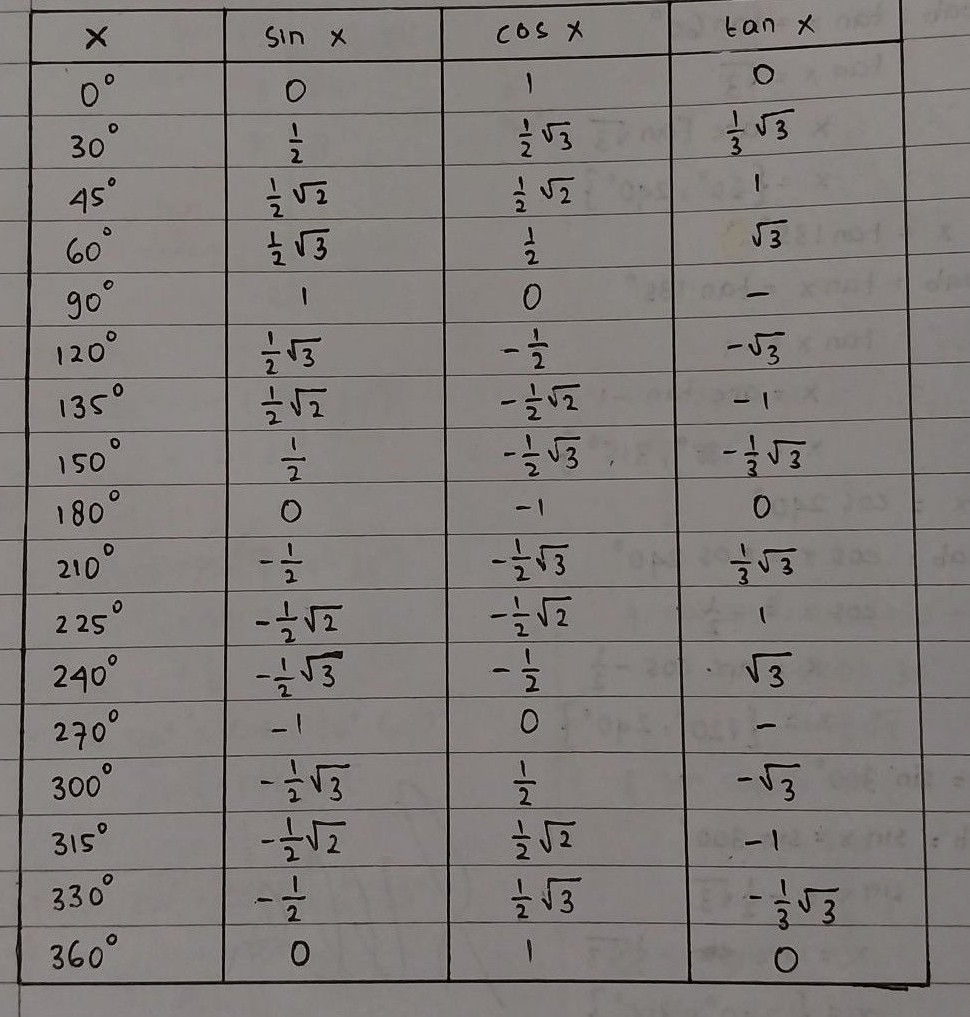 x sin x cos x tan x
0° 0 1 0
30° 1/2 1/2 √3 1/3 √3
45° 1/2 √2 1/2 √2 1
60° 1/2 √3 1/2 √3
90° 1 0 -
120° 1/2 √3 -1/2 -√3
135° 1/2 √2 -1/2 √2 -1
150° 1/2 -1/2 √3 -1/3 √3
180° 0 -1 0
210° -1/2 -1/2 √3 1/3 √3
225° -1/2 √2 -1/2 √2 1
240° -1/2 √3 -1/2 √3
270° -1 0 -
300° -1/2 √3 1/2 -√3
315° -1/2 √2 1/2 √2 -1
330° -1/2 1/2 √3 -1/3 √3
360° 0 1 0